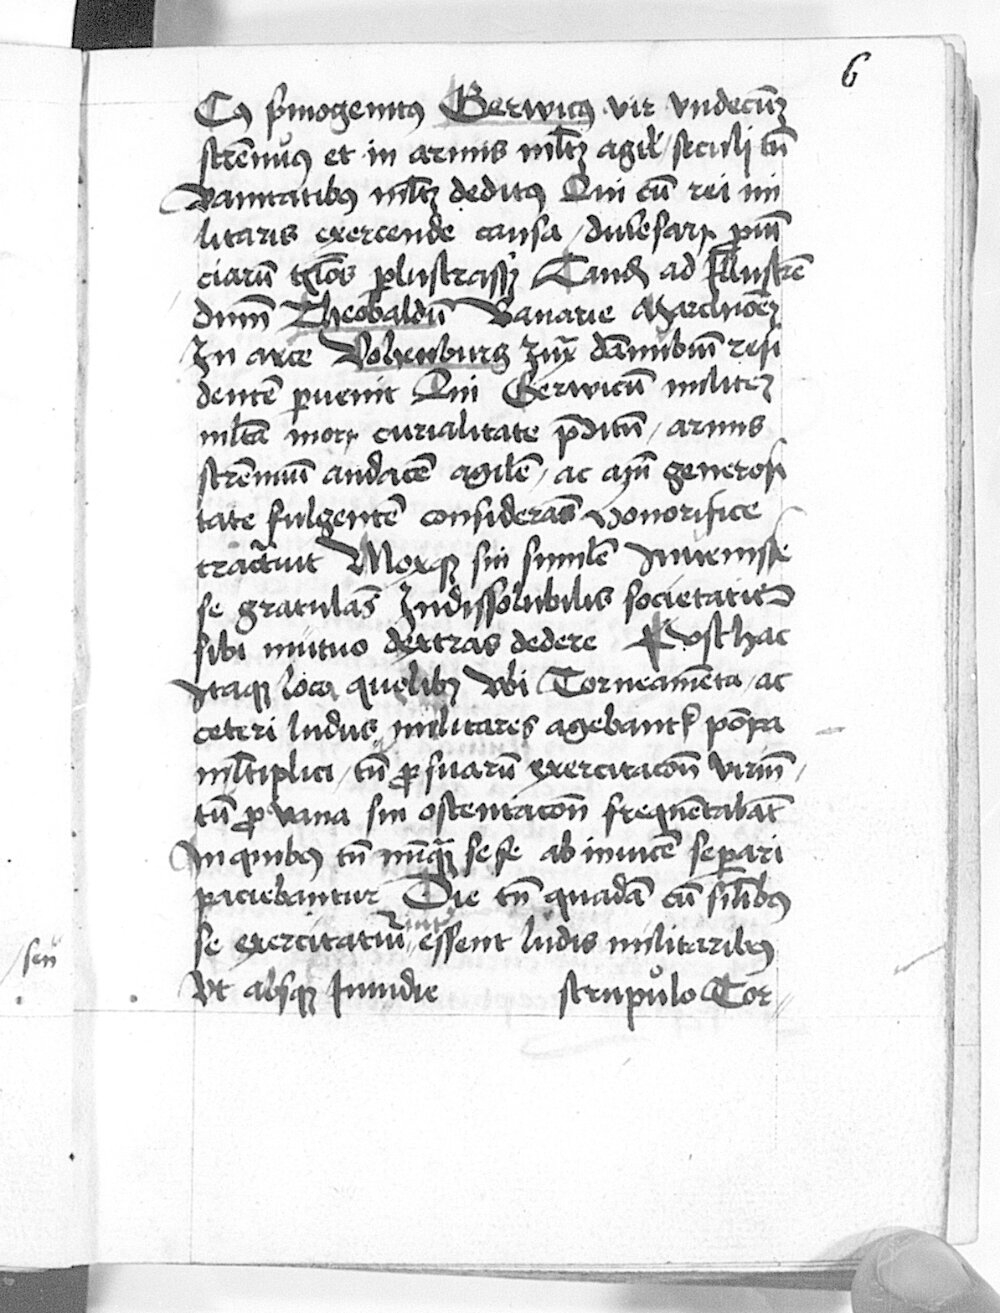 6
Cuius primogenitus Gerwicus vir undecumque
strenuus et in armis multum agilis / seculi tamen
vanitatibus multum deditus Qui cum rei mi
litaris exercende causa / diversarum provin
ciarum regiones perlustrasset Tandem ad Illustrem
dominum Theobaldum Bavarie Marchionem
In arce Vohenburg Iuxta danubium resi
dentem pervenit Qui Gerwicum militem
multa morum curialitate preditum / armis
strennuum audacem agilem / ac animi generosi
tate fulgentem considerans honorifice
tractavit Moxque sui similem Invenisse
se gratulans Indissolubilis societatis
sibi mutuo dextras dedere Post hac
Itaque loca quelibet Ubi Torneamenta / ac
ceteri ludus militares agebantur pompa
multiplici / tum pro suarum exercitacione virium /
tum pro vana sui ostentacione frequentabant
In quibus tamen nunquam sese ab invicem separi
paciebantur Die tamen quadam cum similibus
se exercitaturi essent ludis militaribus
Ut absque Invidie scrupulo Tor
seu